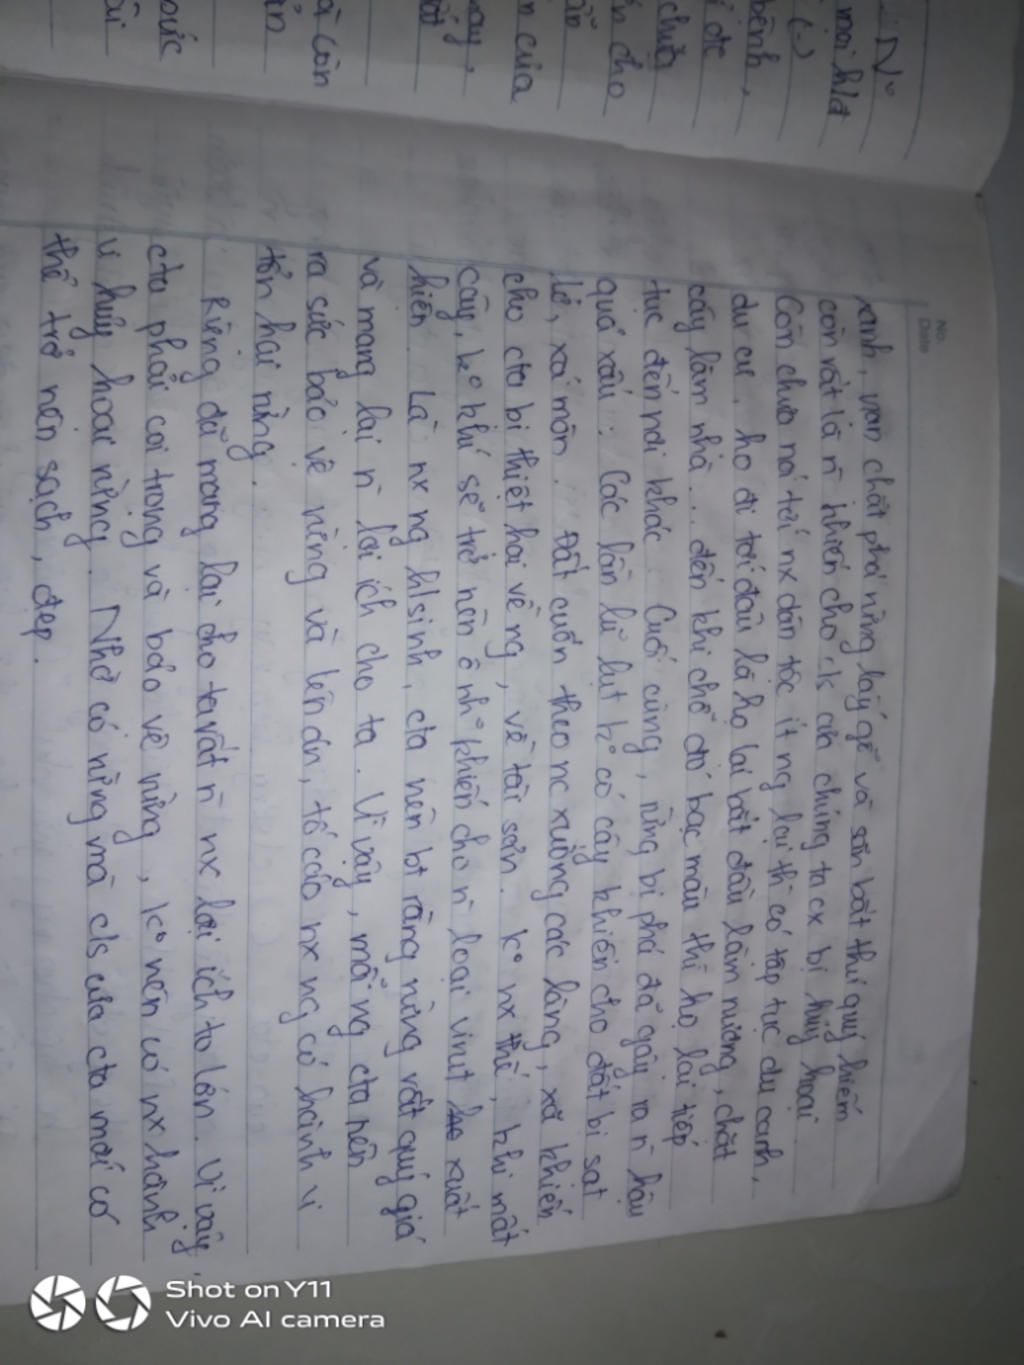 N°
mọi hlđ
(-)
bệnh,
i đc
chữa
n cho
n của
ay,
à còn
ức
No.
Date
xanh, vẫn chặt phá rừng lấy gỗ và săn bắt thú quý hiếm
còn vất là n̄ khiến cho c/s của chúng ta cx bị hủy hoại
Còn chưa nói tới nx dân tộc ít ng lại thì có tập tục du canh,
du cư, họ đi tới đâu là họ lại bắt đầu làm nương, chặt
cây làm nhà... đến khi chỗ đó bạc màu thì họ lại tiếp
tục đến nơi khác. Cuối cùng, rừng bị phá đã gây ra n̄ hậu
quả xấu: Các lần lũ lụt k° có cây khiến cho đất bị sạt
lở, xói mòn. Đất cuốn theo nc xuống các làng, xã khiến
cho cta bị thiệt hại về ng, về tài sản. k° nx thế, khi mất
cây, k° khí sẽ trở nên ô nh° khiến cho n̄ loại virut xuất
hiện. Là nx ng h/sinh, cta nên bt rằng rừng rất quý giá
và mang lại n̄ lợi ích cho ta. Vì vậy, mỗi ng cta nên
ra sức bảo vệ rừng và lên án, tố cáo nx ng có hành vi
tổn hại rừng.
Rừng đã mang lại cho ta rất n̄ nx lợi ích to lớn. Vì vậy,
cta phải coi trọng và bảo vệ rừng, k° nên có nx hành
vi hủy hoại rừng. Nhờ có rừng mà c/s của cta mới có
thể trở nên sạch, đẹp.
Shot on Y11
Vivo AI camera